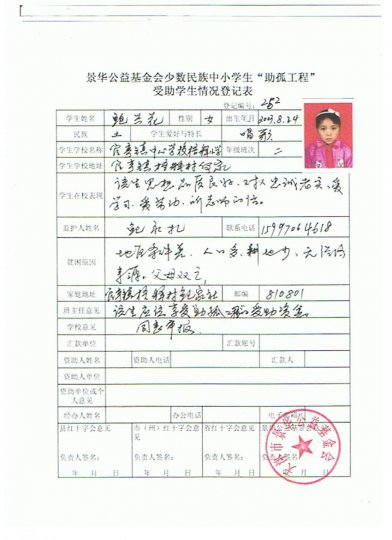 景华公益基金会少数民族中小学生“助孤工程”
受助学生情况登记表
登记编号: 252
学生姓名 鲍兰花 性别 女 出生年月 2003.8.24
民族 土 学生爱好与特长 唱歌
学生学校名称 官亭镇中心学校 小学 年级班次 二
学生学校地址 官亭镇
学生在校表现 该生思想品质良好,对人忠诚老实,爱
学习,爱劳动,
监护人姓名 鲍 联系电话 15997064618
贫困原因 地区条件差,人口多,耕地少,无经济
来源。父母双亡
家庭地址 官亭镇 村鲍家社 邮编 810801
班主任意见 该生应该享受助孤 受助资金。
学校意见 同意申报
汇款单位 汇款账号
资助人姓名 资助人电话 汇款人
资助人单位
资助单位或个人意见
经办人姓名 办公电话 电子
县红十字会意见 市(州)红十字会意见 省红十字会意见 景
负责人签名: 负责人签名: 负责人签名: 负责人签名:
年 月 日 年 月 日 年 月 日 年 月 日
市景华公益基金会